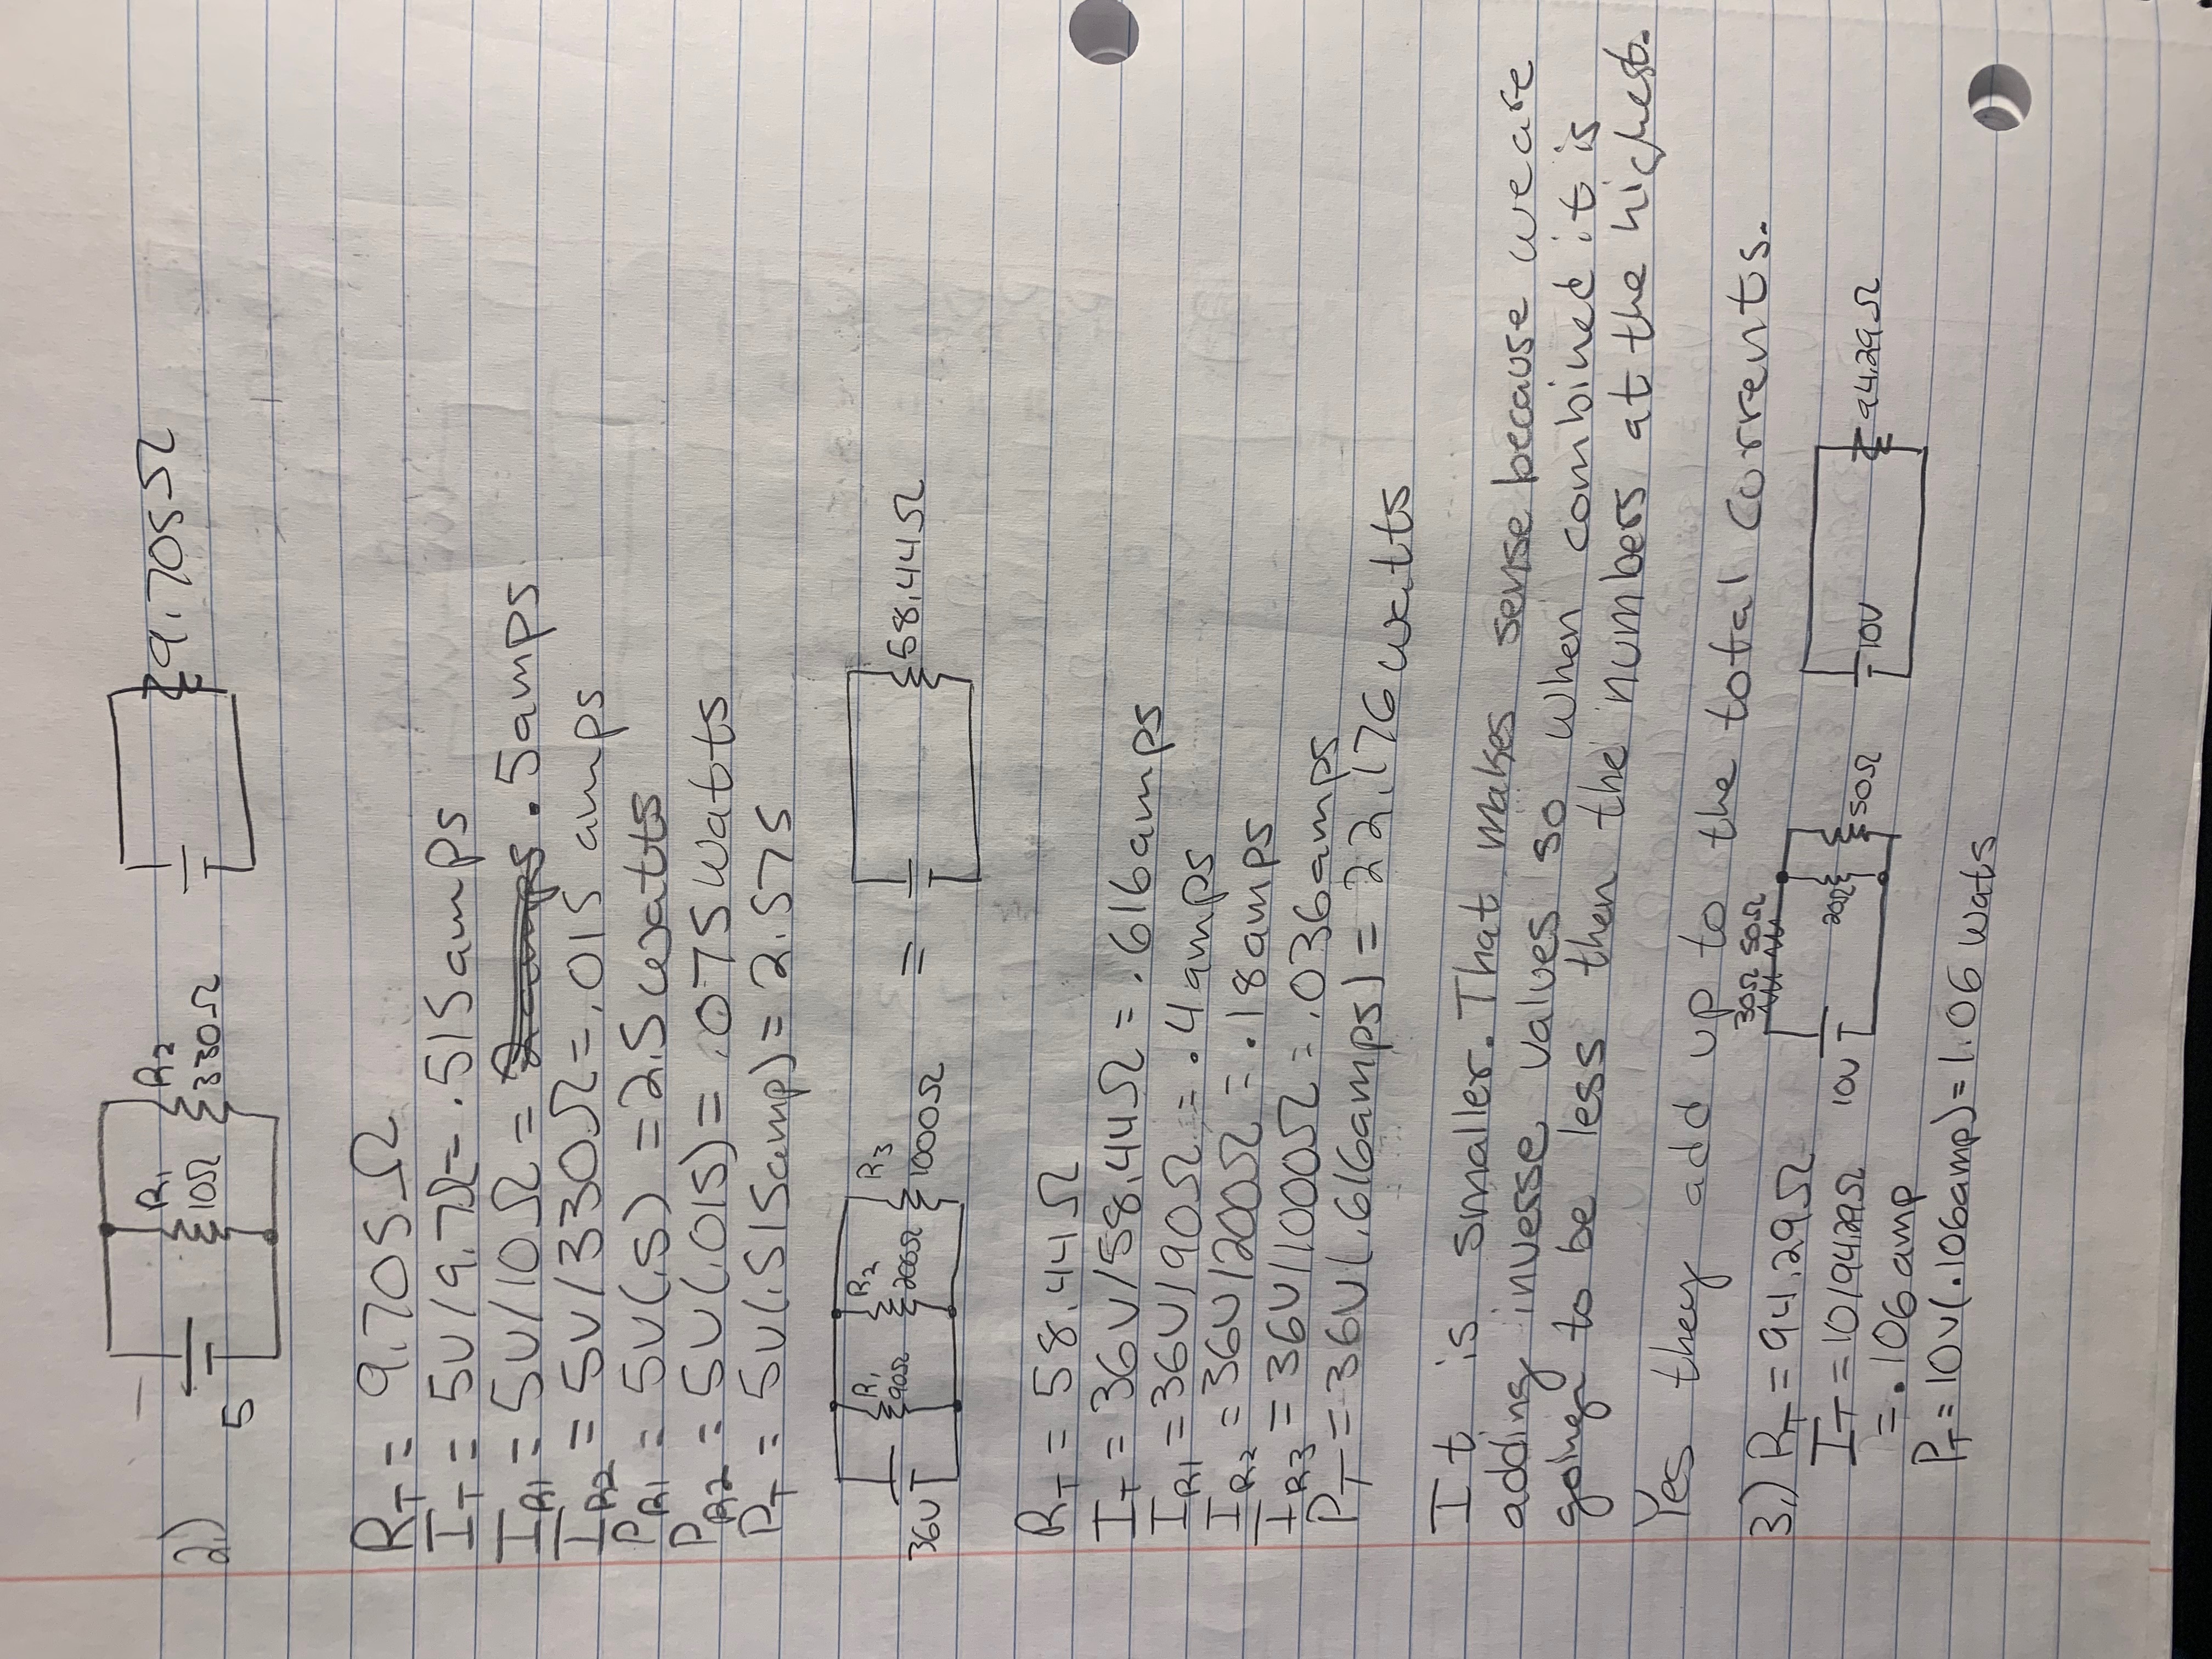 2.)
5
R1
10Ω
R2
330Ω
9.705Ω
RT = 9.705Ω
IT = 5V/9.7Ω = .515amps
IR1 = 5V/10Ω = 2 amps .5amps
IR2 = 5V/330Ω = .015 amps
PR1 = 5V(.5) = 2.5 watts
PR2 = 5V(.015) = .075 Watts
PT = 5V(.515amp) = 2.575
36V
R1
90Ω
R2
200Ω
R3
1000Ω
=
58.44Ω
RT = 58.44Ω
IT = 36V/58.44Ω = .616amps
IR1 = 36V/90Ω = .4amps
IR2 = 36V/200Ω = .18amps
IR3 = 36V/1000Ω = .036amps
PT = 36V(.616amps) = 22.176 watts
It is smaller. That makes sense because we are
adding inverse values so when combined it is
going to be less then the numbers at the highest.
Yes they add up to the total currents.
3.) RT = 94.29Ω
IT = 10/94.29Ω
= .106 amp
PT = 10V(.106amp) = 1.06 wats
30Ω 50Ω
10V
20Ω
50Ω
10V
94.29Ω